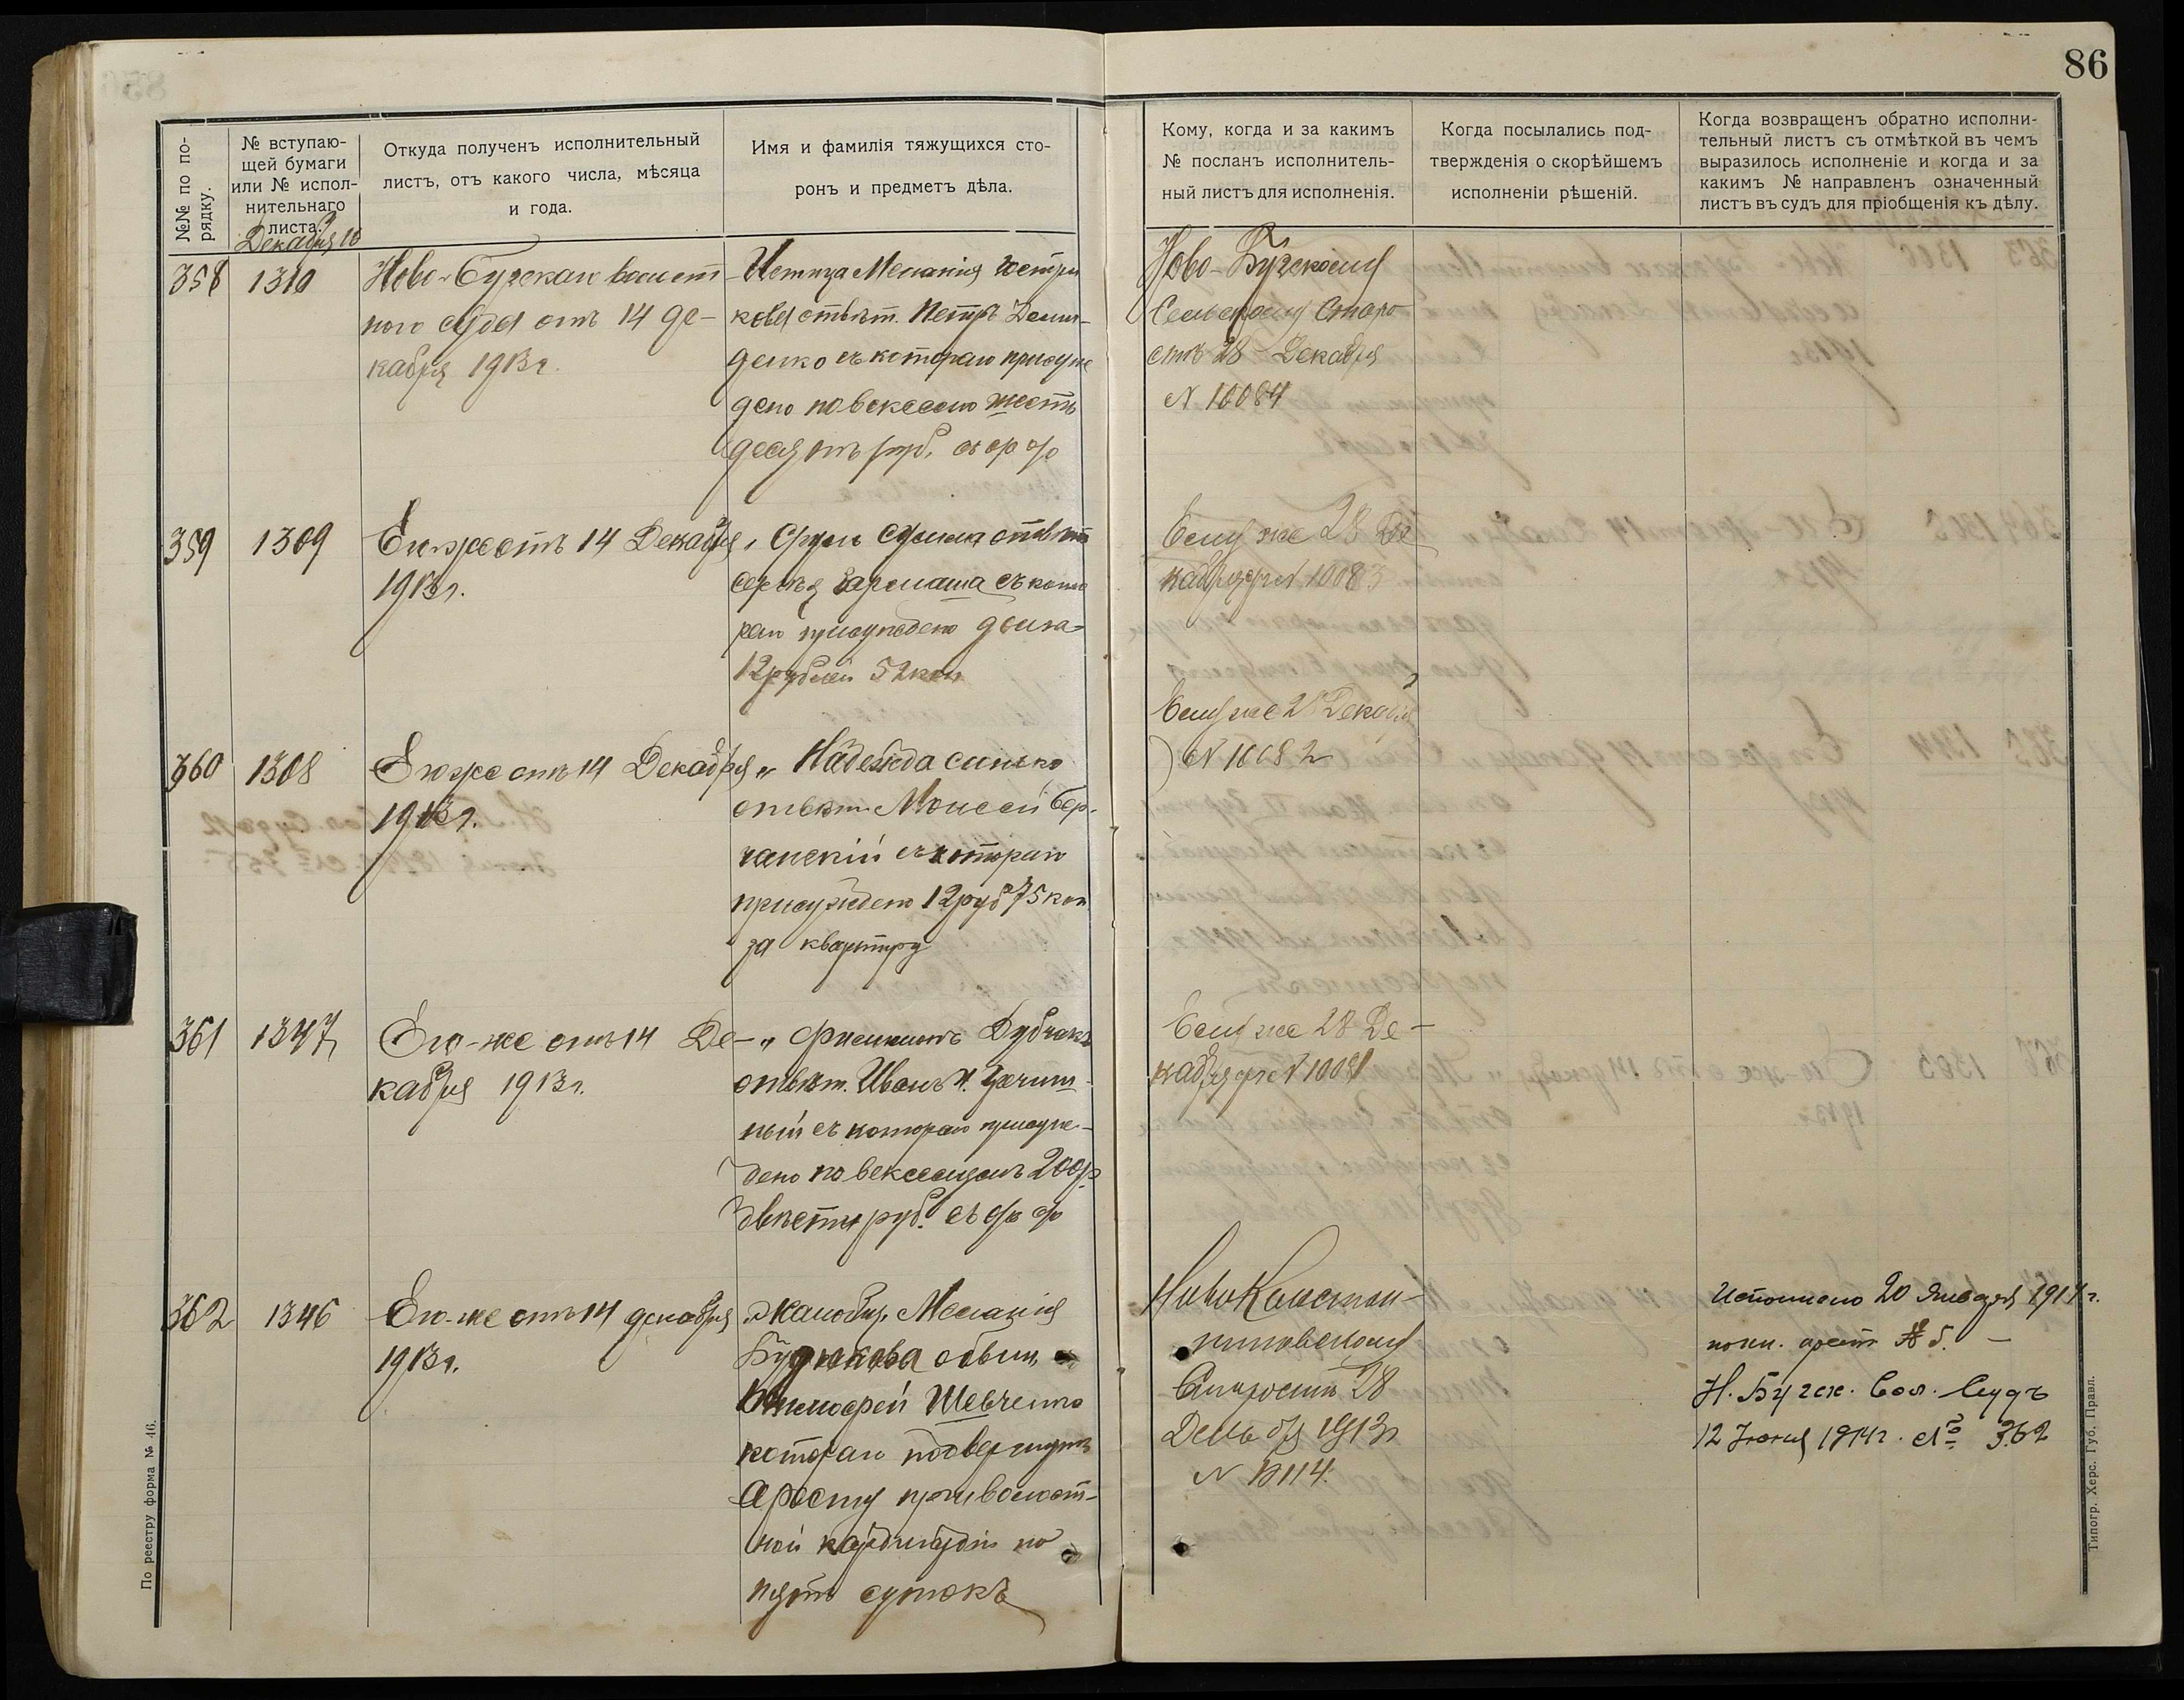 86
№№ по по-
рядку.
№ вступаю-
щей бумаги
или № испол-
нительнаго
листа.
Откуда полученъ исполнительный
листъ, отъ какого числа, мѣсяца
и года.
Имя и фамилія тяжущихся сто-
ронъ и предметъ дѣла.
Кому, когда и за какимъ
№ посланъ исполнитель-
ный листъ для исполненія.
Когда посылались под-
твержденія о скорѣйшемъ
исполненіи рѣшеній.
Когда возвращенъ обратно исполни-
тельный листъ съ отмѣткой въ чемъ
выразилось исполненіе и когда и за
какимъ № направленъ означенный
листъ въ судъ для пріобщенія къ дѣлу.
Декабря 16
358
1310
Ново-Бугскаго волост
ного суда отъ 14 де-
кабря 1913 г.
Истица Меланія
отвѣт. Петръ Деми-
денко съ котораго присуж
дено по векселю шесть
десятъ руб. съ %
Ново-Бугскому
Сельскому Старо
стѣ 28 Декабря
№ 10084
359
1309
Его-же отъ 14 Декабря
1913 г.
отвѣт
съ кото
раго присуждено
12 рублей 52 коп
Ему же 28 Де
кабря № 10083
360
1308
Его же отъ 14 Декабря
1913 г.
" Надежда
отвѣт. Моисей Бер-
чанскій съ котораго
присуждено 12 руб 75 коп
за квартиру
Ему же 28 Декабря
№ 10082
361
1347
Его-же отъ 14 Де-
кабря 1913 г.
" Филимонъ Дубчакъ
отвѣт. Иванъ
ный съ котораго присуж-
дено по векселямъ 200 р
двѣсти руб. съ %
Ему же 28 Де-
кабря № 10081
362
1346
Его-же отъ 14 декабря
1913 г.
Жалобщ. Меланія
обвин.
Тимофей Шевченко
котораго подвергнуть
аресту при волост-
ной на
пять сутокъ
Ново Констан-
тиновскому
Старостѣ 28
1913 г
№ 10114.
Исполнено 20 Января 1914 г.
арест
Н. Бугск. Вол. Судъ
12 Іюня 1914 г. № 362
По реестру форма № 46.
Типогр. Херс. Губ. Правл.